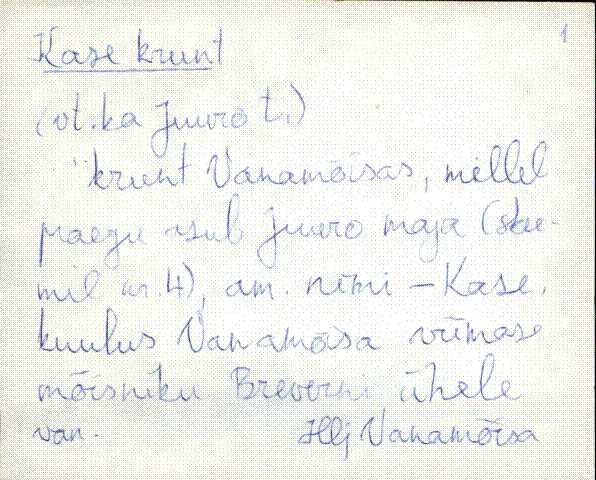 1
Kase krunt
(vt. ka Juuro t.)
krunt Vanamõisas, millel
praegu asub Juuro maja (skee-
mil nr. 4), am. nimi - Kase.
kuulus Vanamõisa viimase
mõisniku Breverni ühele
van. Hlj Vanamõisa